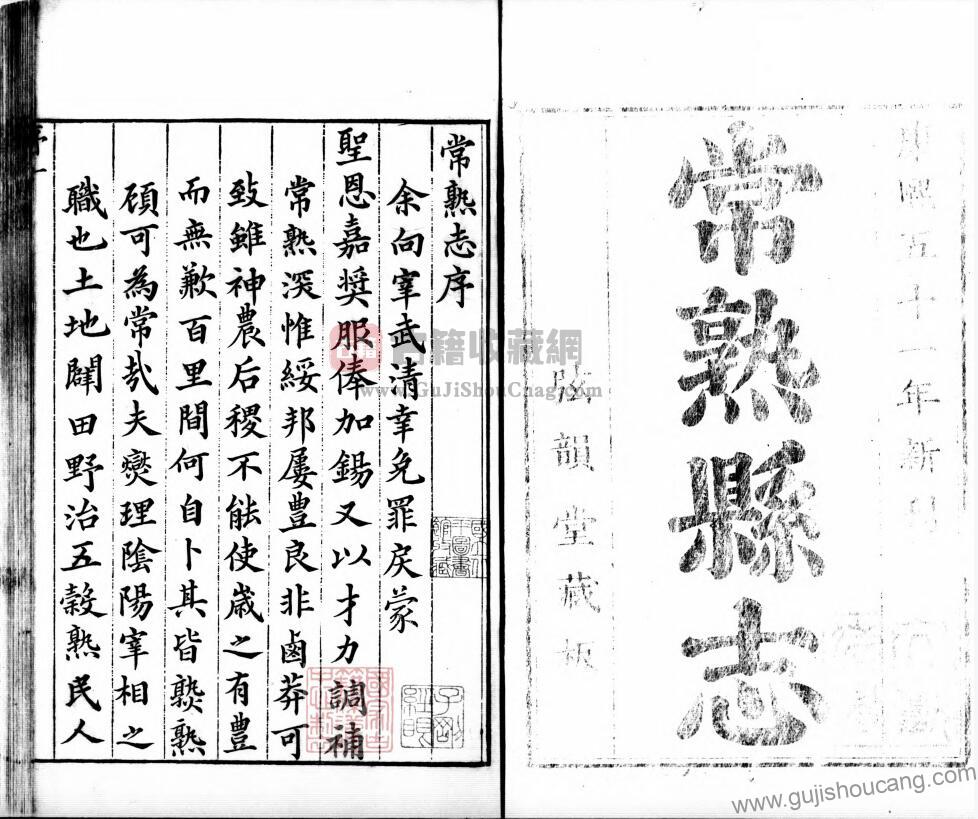 康熙五十一年新刊
常熟縣志
韻堂藏板
常熟志序
余向宰武清幸免罪戾蒙
聖恩嘉奬服俸加錫又以才力調補
常熟深惟綏邦屢豊良非鹵莽可
致雖神農后稷不能使歲之有豊
而無歉百里間何自卜其皆熟熟
顧可為常㢤夫爕理陰陽宰相之
職也土地闢田野治五穀熟民人
古籍收藏網
www.GuJiShouCang.com
www.gujishoucang.com